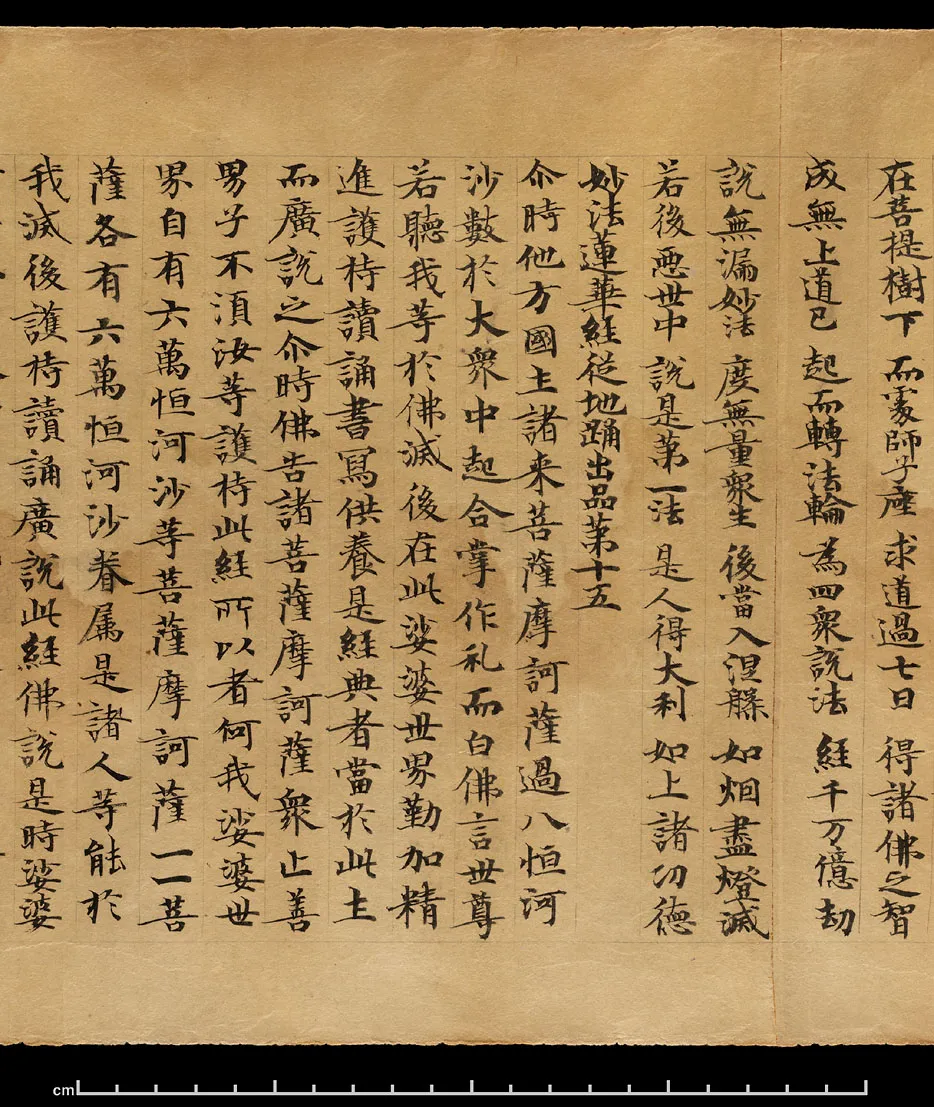 在菩提樹下 而處師子座 求道過七日 得諸佛之智
成無上道已 起而轉法輪 為四衆說法 經千万億劫
說無漏妙法 度無量衆生 後當入涅槃 如烟盡燈滅
若後惡世中 說是第一法 是人得大利 如上諸功德
妙法蓮華經從地踊出品第十五
尒時他方國土諸来菩薩摩訶薩過八恒河
沙數於大衆中起合掌作礼而白佛言世尊
若聽我等於佛滅後在此娑婆世界勤加精
進護持讀誦書寫供養是經典者當於此土
而廣說之尒時佛告諸菩薩摩訶薩衆止善
男子不湏汝等護持此經所以者何我娑婆世
界自有六萬恒河沙等菩薩摩訶薩一一菩
薩各有六萬恒河沙眷属是諸人等能於
我滅後護持讀誦廣說此經佛說是時娑婆
cm